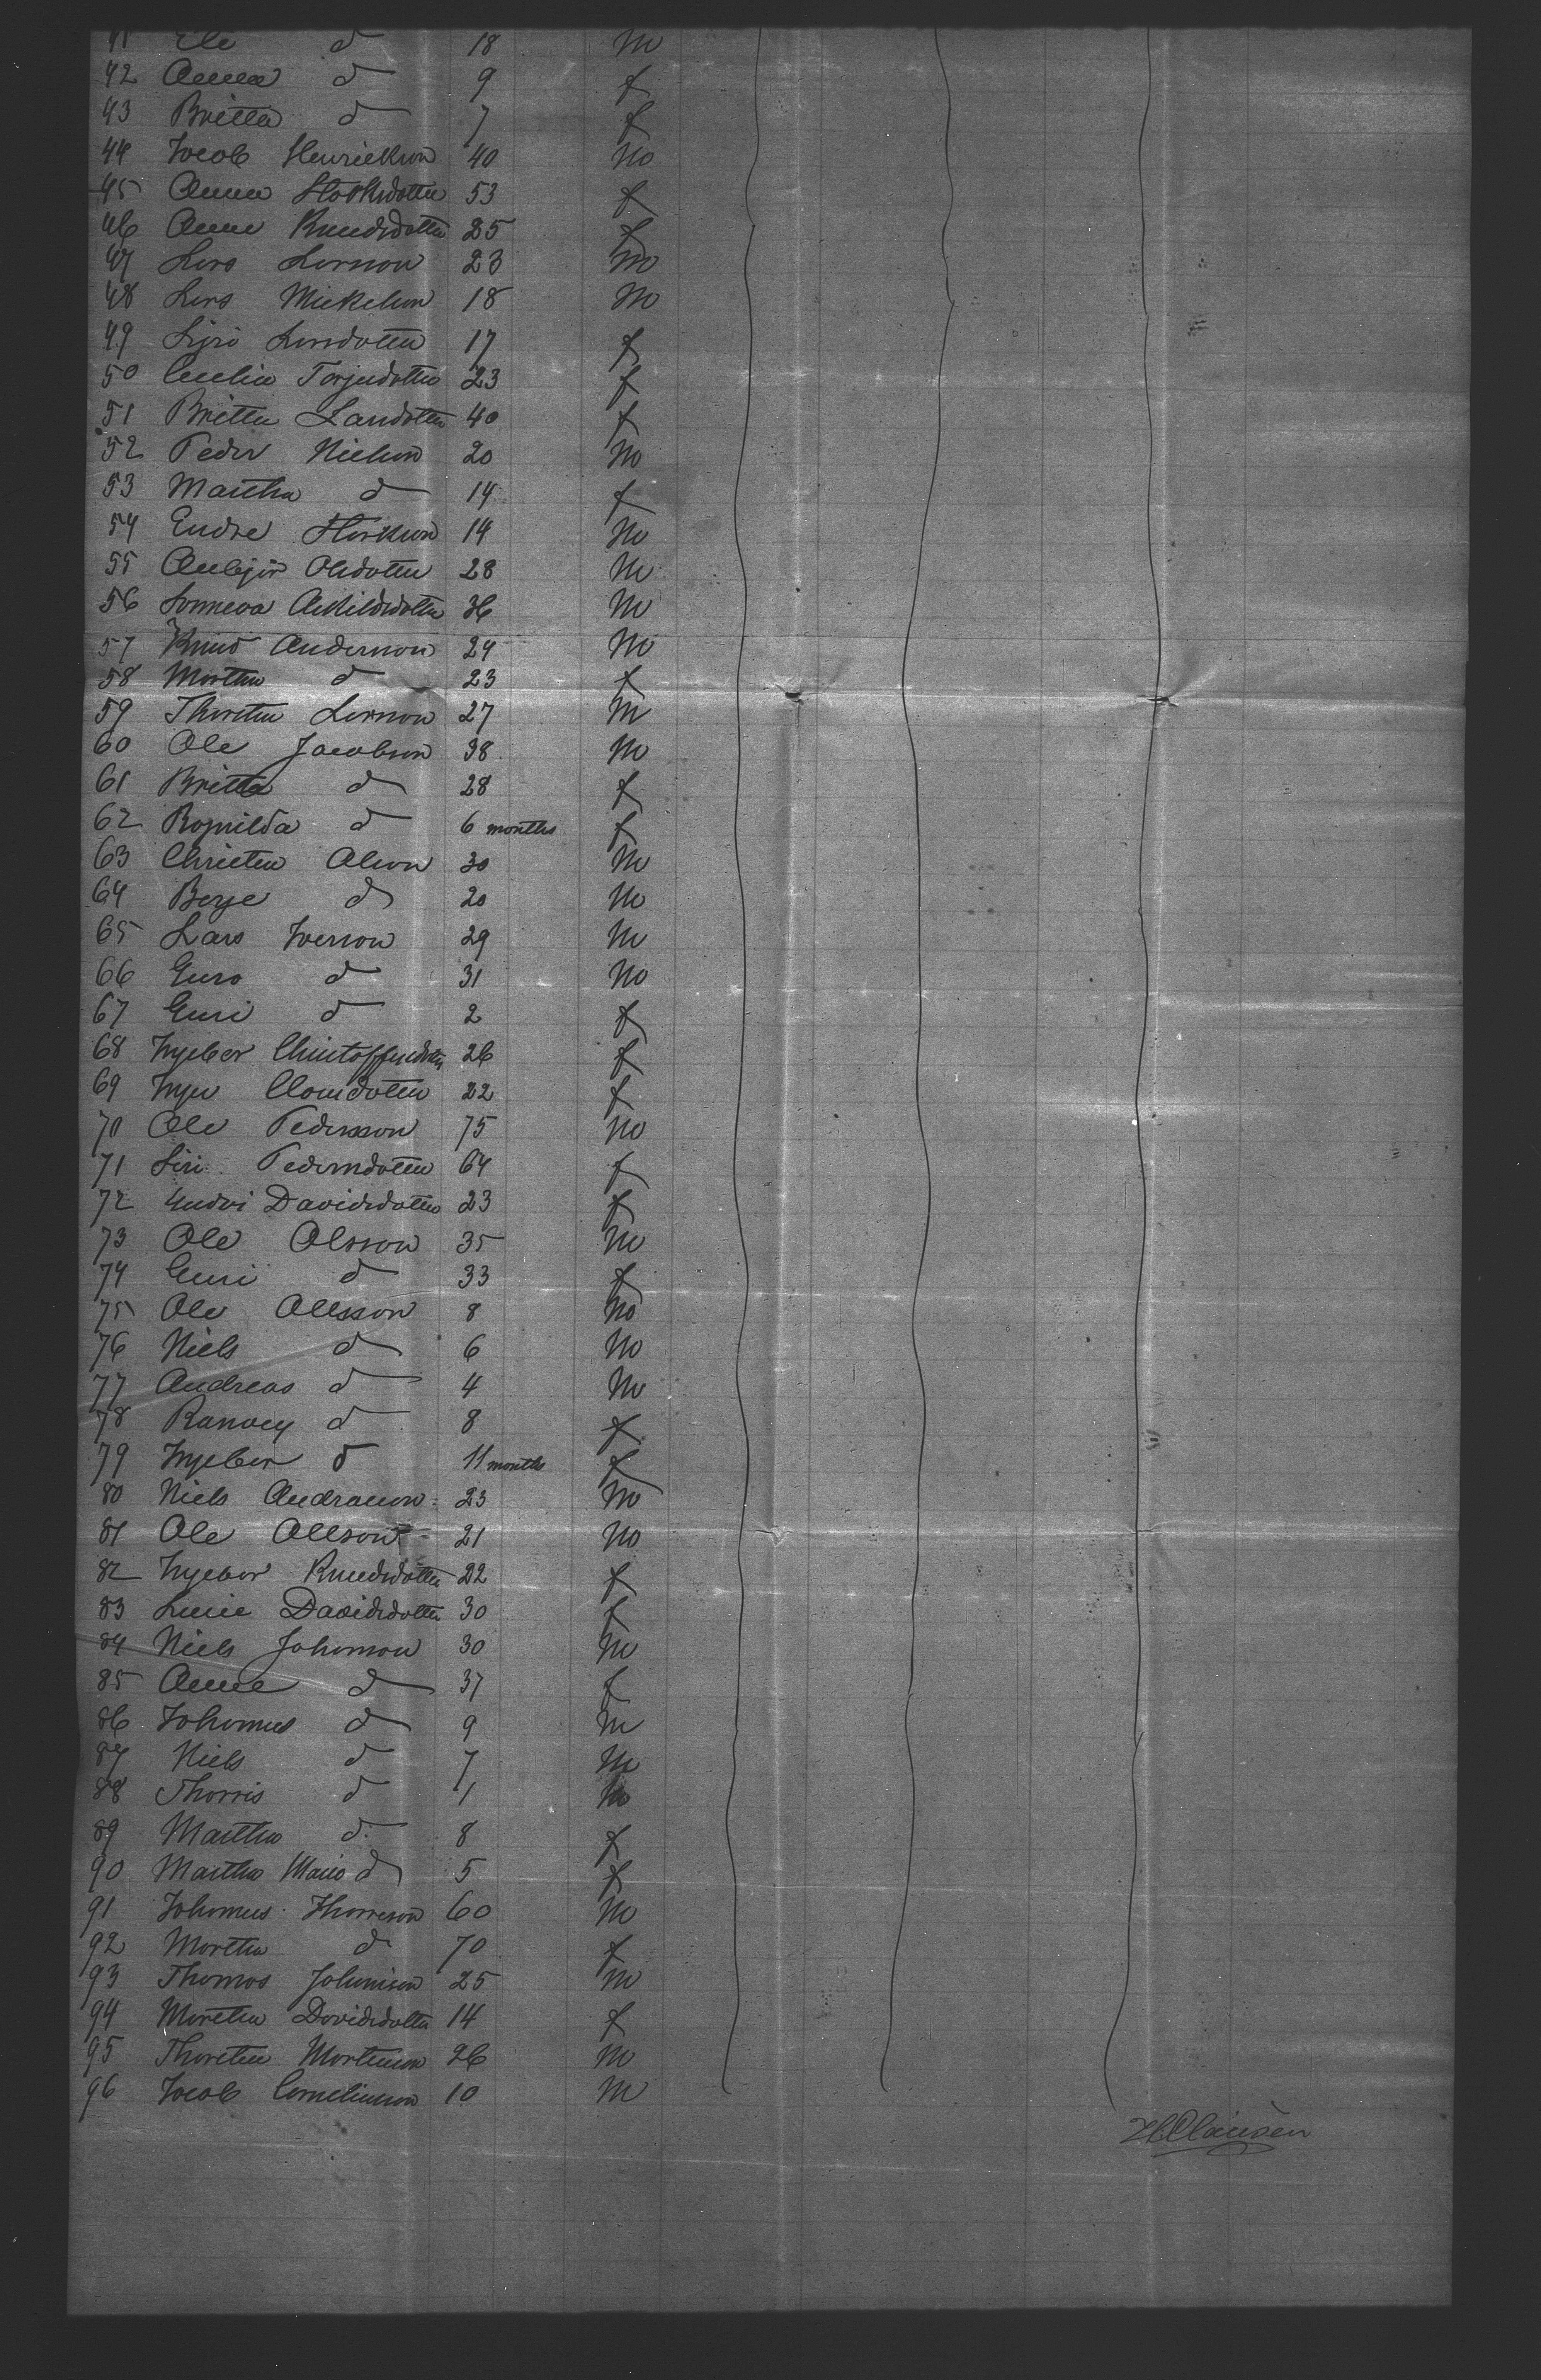 41 Ole d 18 m
42 Anna d 9 f
43 Britta d 7 f
44 Jacob Henrickson 40 m
45 Anna 53 f
46 Anne Knudsdotter 25 f
47 Lars Larsson 23 m
48 Lars Mickelson 18 m
49 Siri Larsdotter 17 f
50 Cecilia Torjusdotter 23 f
51 Britta Larsdotter 40 f
52 Peder Nielson 20 m
53 Martha d 14 f
54 Endre 14 m
55 Olsdotter 28 m
56 36 m
57 Knud Anderson 24 m
58 Martha d 23 f
59 Thorsten Larsson 27 m
60 Ole Jacobson 38 m
61 Britta d 28 f
62 Ragnilda d 6 months f
63 Christen Olson 30 m
64 d 20 m
65 Lars Iverson 29 m
66 Guro d 31 m
67 Guri d 2 f
68 Ingebor 26 f
69 22 f
70 Ole Pedersson 75 m
71 Siri Pedersdotter 64 f
72 Davidsdotter 23 f
73 Ole Olsson 35 m
74 Guri d 33 f
75 Ole Ollsson 8 m
76 Niels d 6 m
77 Andreas d 4 m
78 Ranvey d 8 f
79 Ingebor d 11 months f
80 Niels 23 m
81 Ole Ollson 21 m
82 Ingebor Knudsdotter 22 f
83 Davidsdotter 30 f
84 Niels Johnson 30 m
85 Anne d 37 f
86 Johannes d 9 m
87 Niels d 7 m
88 Thorris d 1 m
89 Martha d 8 f
90 Martha Maria d 5 f
91 Johannes Thorreson 60 m
92 Martha d 70 f
93 Thomas 25 m
94 Martha Davidsdotter 14 f
95 Thorsten Mortenson 26 m
96 Jacob Corneliusson 10 m
H Clausen